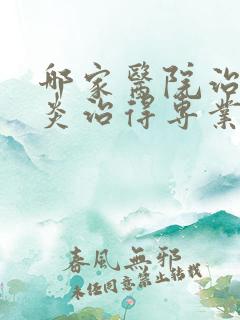 那家醫院治
炎治得專業
春風無邪
未经同意禁止转载